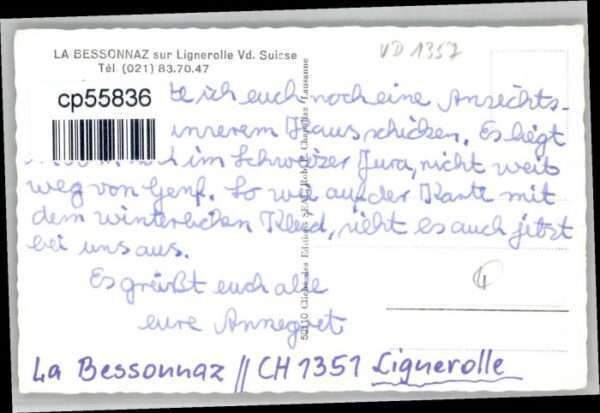 LA BESSONNAZ sur Lignerolle Vd. Suisse
Tél. (021) 83.70.47
VD 1357
cp55836
te ich euch noch eine Ansichts-
unserem Haus schicken. Es liegt
im Schweizer Jura, nicht weit
weg von Genf. So wie auf der Karte mit
dem winterlichen Kleid, sieht es auch jetzt
bei uns aus.
Es grüßt euch alle
eure Annegret
La Bessonnaz // CH 1351 Lignerolle
50110 Clichés des Editions Lausanne
4